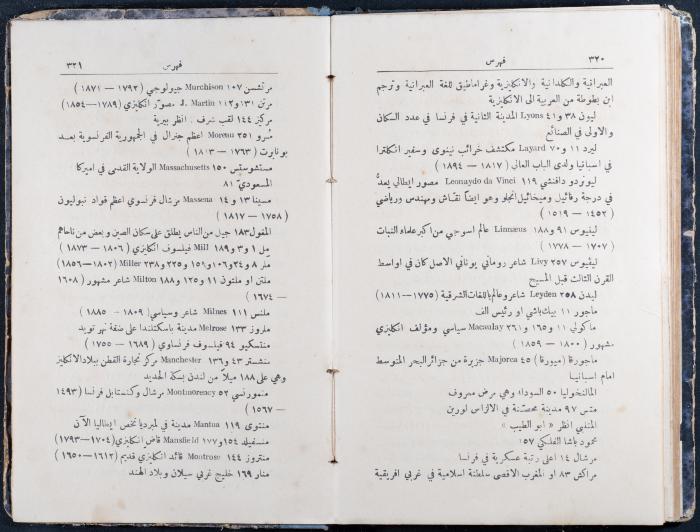 ٣٢٠
فهرس
العبرانية والكلدانية والانكليزية وغراماطيق للغة العبرانية وترجم
ابن بطوطة من العربية الى الانكليزية
ليون ٣٨ و٤١ Lyons المدينة الثانية في فرنسا في عدد السكان
والاولى في الصنائع
ليرد ١١ و٧٠ Layard مكتشف خرائب نينوى وسفير انكلترا
في اسبانيا ولدى الباب العالي ( ١٨١٧ — ١٨٩٤ )
ليونردو دافنشي ١١٩ Leonaydo da Vinci مصور ايطالي يعدُّ
في درجة رفائيل وميخائيل انجلو وهو ايضاً نقاش ومهندس ورياضي
( ١٤٥٢ — ١٥١٩ )
لينيوس ٩١ و١٨٨ Linnæus عالم اسوجي من اكبر علماء النبات
( ١٧٠٧ — ١٧٧٨ )
ليڤيوس ٢٥٧ Livy شاعر روماني يوناني الاصل كان في اواسط
القرن الثالث قبل المسيح
ليدن ٢٥٨ Leyden شاعر وعالم باللغات الشرقية (١٧٧٥—١٨١١)
ماجور ١١ بيك باشي او رئيس الف
ماكولي ١١ و١٦٥ و٢٦١ Macaulay سياسي ومؤلف انكليزي
مشهور ( ١٨٠٠ — ١٨٥٩ )
ماجورقا (ميورقا) ٤٥ Majorca جزيرة من جزائر البحر المتوسط
امام اسبانيا
المالنخوليا ٥٠ السوداء وهي مرض معروف
متس ٩٧ مدينة محصّنة في الالزاس لورين
المتنبي انظر « ابو الطيب »
محمود باشا الفلكي ٥٧
مرشال ١٤ اعلى رتبة عسكرية في فرنسا
مراكش ٨٣ او المغرب الاقصى سلطنة اسلامية في غربي افريقية
فهرس
٣٢١
مرتشسن ١٠٧ Murchison جيولوجي ( ١٧٩٢ — ١٨٧١ )
مرتن ١٣١ و١١٢ J. Martin مصوّر انكليزي (١٧٨٩—١٨٥٤)
مركيز ١٤٤ لقب شرف . انظر بيرية
مُرو ٢٥١ Moreau اعظم جنرال في الجمهورية الفرنسوية بعد
بونابرت ( ١٧٦٣ — ١٨١٣ )
مستشوستس ١٥٠ Massachusetts الولاية القدمى في اميركا
المسعودي ٨١
مسينا ١٣ و١٤ Massena مرشال فرنسوي اعظم قواد نبوليون
( ١٧٥٨ — ١٨١٧ )
المغول ١٨٣ جيل من الناس يطلق على سكان الصين وبعض من تاخمهم
مل ١ و٣ و١٨٩ Mill فيلسوف انكليزي ( ١٨٠٦ — ١٨٧٣ )
ملّر ٨ و٢٤ و١٠٦ و١٥١ و٢٢٥ و٢٣٨ Miller (١٨٠٢—١٨٥٦)
ملتن او ملتون ١١ و١٢٥ و١٨٨ Milton شاعر مشهور ( ١٦٠٨
— ١٦٧٤ )
ملنس ١١١ Milnes شاعر وسياسي ( ١٨٠٩ — ١٨٨٥ )
ملروز ١٣٣ Melrose مدينة باسكتلندا على ضفة نهر تويد
منتسكيو ٩٤ فيلسوف فرنساوي ( ١٦٨٩ — ١٧٥٥ )
منشستر ٤٣ و١٣٦ Manchester مركز تجارة القطن ببلاد الانكليز
وهي على ١٨٨ ميلاً من لندن بسكة الحديد
منمورنسي ٥٢ Montmorency مرشال وكنستابل فرنسا ( ١٤٩٣
— ١٥٦٧ )
منتوى ١١٩ Mantua مدينة في لمبرديا تخص ايطاليا الآن
منسفيلد ١٥٤ و١٧٧ Mansfield قاض انكليزي (١٧٠٤—١٧٩٣)
منتروز ١٤٤ Montrose قائد انكليزي قديم (١٦١٢—١٦٥٠)
منار ١٦٩ خليج غربي سيلان وبلاد الهند